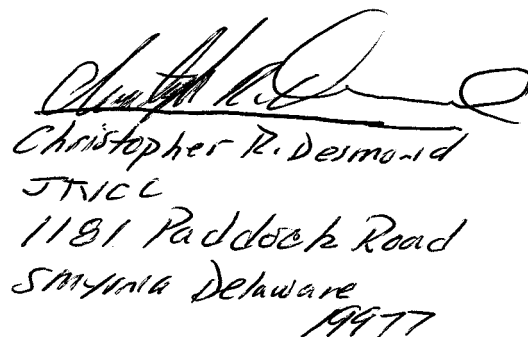 Christopher R. Desmond
JTVCC
1181 Paddock Road
Smyrna Delaware
19977